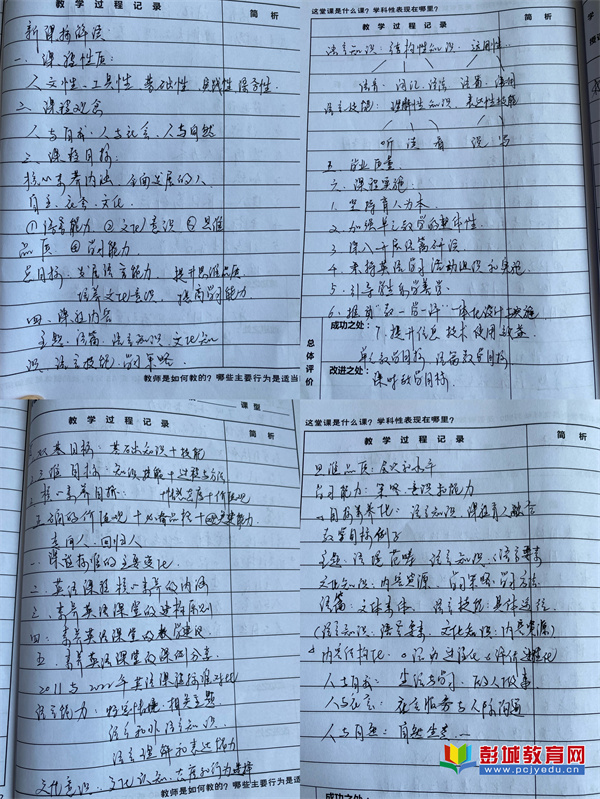 教学过程记录
简析
新课标解读:
一、课程性质:
人文性、工具性、基础性、实践性、综合性.
二、课程理念
人与自我、人与社会、人与自然
三、课程目标:
核心素养内涵,全面发展的人
自主、社会、文化
①语言能力 ②文化意识 ③思维
品质 ④学习能力
总目标:发展语言能力 提升思维品质
培养文化意识 提高学习能力
四、课程内容
主题、语篇、语言知识、文化知
识、语言技能、学习策略
教师是如何教的?哪些主要行为是适当
这堂课是什么课?学科性表现在哪里?
教学过程记录
简析
语言知识:结构性知识、运用性
语音、词汇、语法、语篇、语用
语言技能:理解性 表达性技能
听 读 看 说 写
五、学业质量
六、课程实施
1. 坚持育人为本
2. 加强单元教学的整体性
3. 深入开展语篇研读
4. 秉持英语学习活动观组织和实施
5. 引导学生乐学善学
6. 推动“教—学—评”一体化设计与实施
成功之处:
7. 提升信息技术使用效益
总体评价
单元教学目标 语篇教学目标
改进之处:
课时教学目标.
课型
教学过程记录
简析
双基目标:基础知识+技能
三维目标:知识技能+过程与方法
核心素养目标:
正确的价值观+必备品格+关键能力.
育人,回归人
一、课程标准的主要变化
二、英语课程核心素养的内涵
三、素养英语课堂的建构原则
四、素养英语课堂的教学建议
五、素养英语课堂的课例分享
2011与2022年英语课程标准对比
语言能力:
语言和非语言知识
语言理解和表达能力
文化意识:文化认知、态度和行为选择
教师是如何教的?哪些主要行为是适当
这堂课是什么课?学科性表现在哪里?
教学过程记录
简析
思维品质:
学习能力:策略、意识和能力
目标素养化:语言知识 课程育人融合
教学目标例子
主题:语境范畴 语言知识:语言要素
文化知识:内容资源 学习策略:学习方法
语篇:文体素体 语言技能:具体途径
(语言知识:语言要素,文化知识:内容资源)
内容结构化:
人与自我: 生活与学习 做人做事
人与社会: 社会服务与人际沟通
人与自然: 自然生态...
成功之处:
彭城教育网
www.pcjyedu.cn